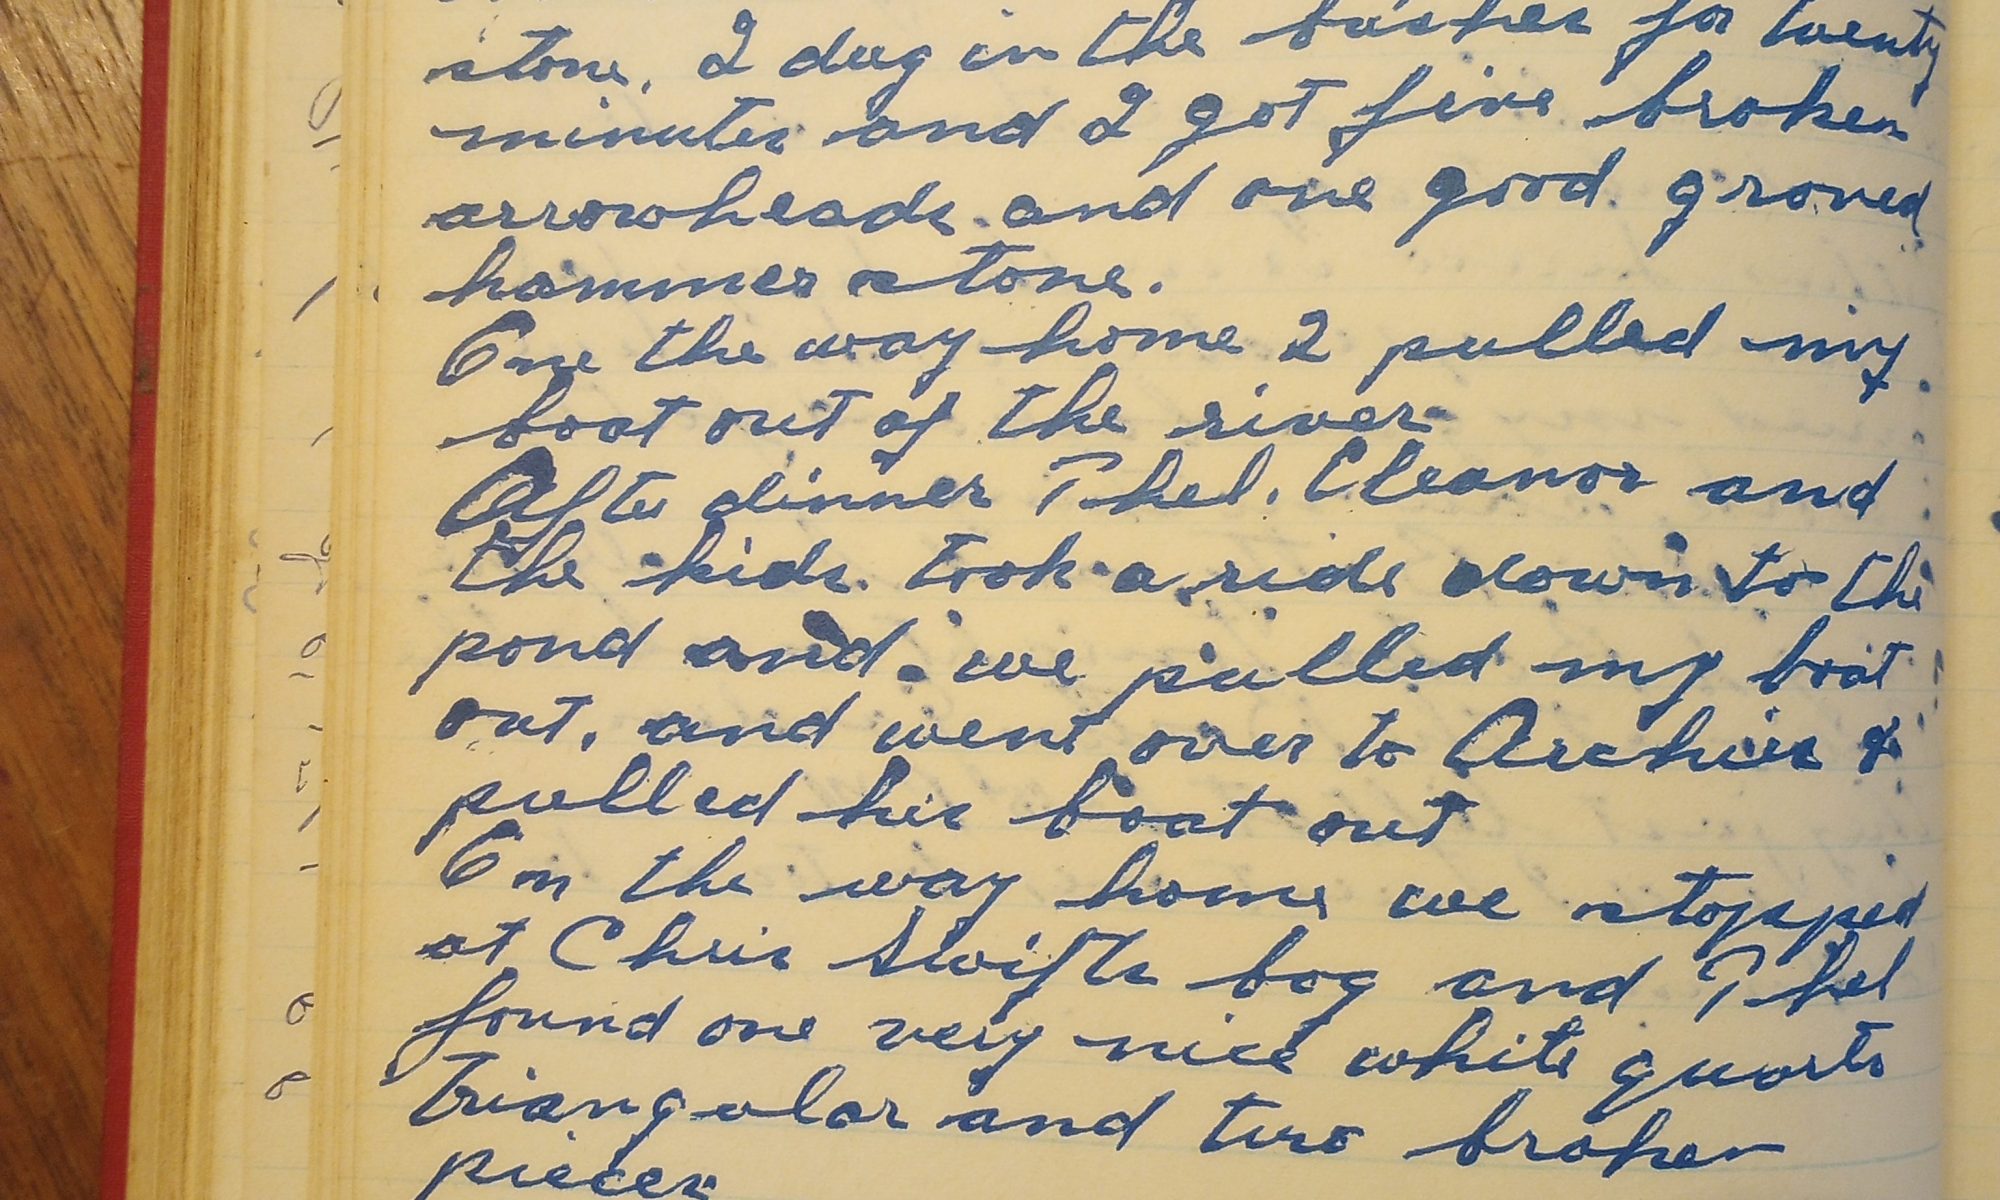 stone. I dug in the bushes for twenty
minutes and I got five broken
arrowheads and one good groved
hammer stone.
One the way home I pulled my
boat out of the river
After dinner Thel. Eleanor and
the kids took a ride down to the
pond and we pulled my boat
out, and went over to Archies &
pulled his boat out
On the way home we stopped
at Chris Swifts bog and Thel
found one very nice white quarts
triangular and two broken
pieces